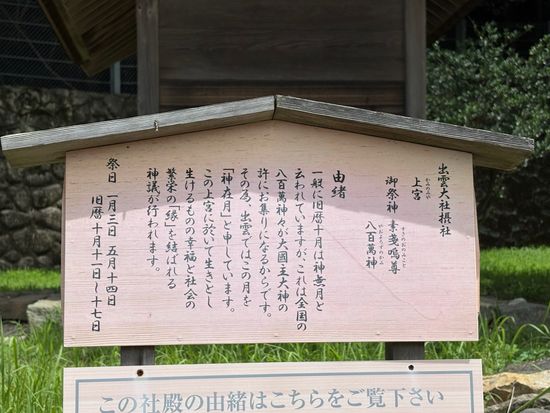 出雲大社摂社
上宮
かみのみや
御祭神 素戔嗚尊
すさのおのみこと
八百萬神
やおよろずのかみ
由緒
一般に旧暦十月は神無月と
云われていますが、これは全国の
八百萬神々が大國主大神の
許にお集りになるからです。
その為、出雲ではこの月を
「神在月」と申しています。
この上宮に於いて生きとし
生けるものの幸福と社会の
繁栄の「縁」を結ばれる
神議が行われます。
祭日 一月三日 五月十四日
旧暦 十月十一日〜十七日
この社殿の由緒はこちらをご覧下さい